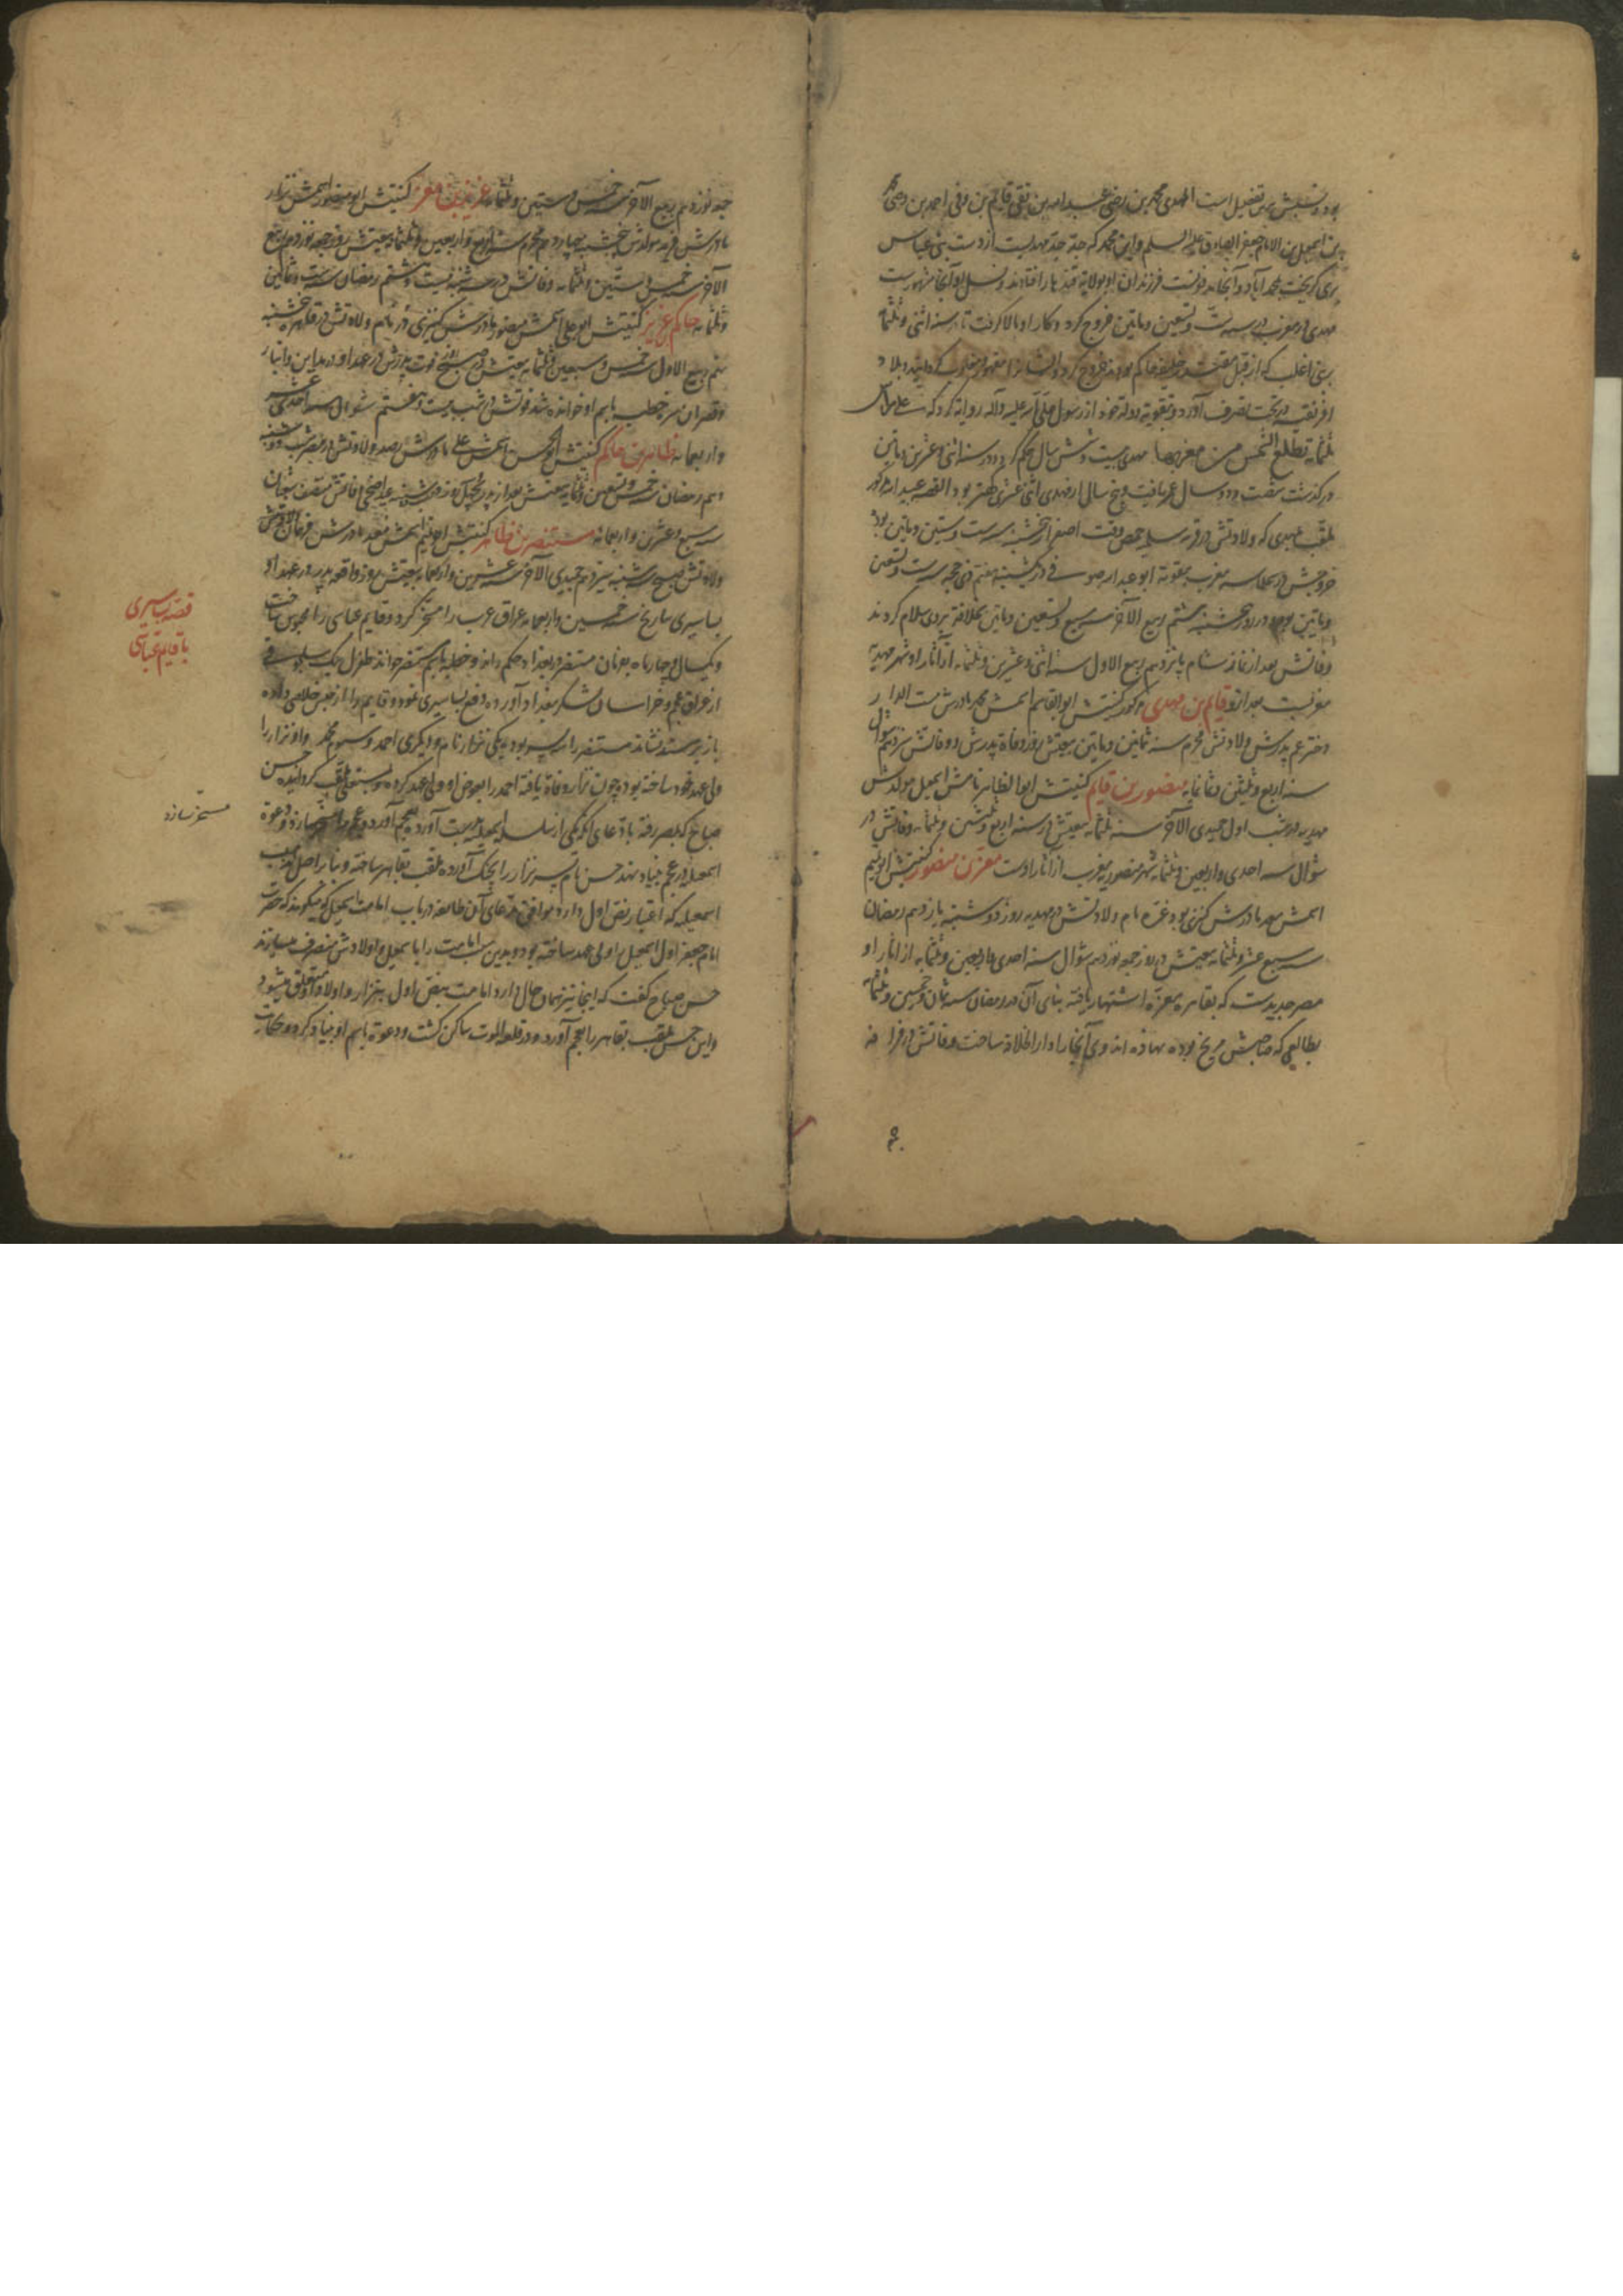 بود و نسبش برین تفضیل است المهدی محمد بن رضی عبدالله بن تقی قایم بن وفی احمد بن وصی محمد
بن اسمعیل بن الامام جعفر الصادق علیه السلم و این محمد که جد جد مهدیست از دست بنی عباس
بری گریخت محمد آباد و آنجا بدو منسوبست فرزندان او بولایة قندهار افتادند و نسل او آنجا مشهورست
مهدی در مغرب در سنه ست و تسعین و مایتین خروج کرد و کار او بالا گرفت تا در سنه اثنی و ثلثمایه
بر بنی اغلب که از قبل خلیفه حاکم بودند خروج کرد و ایشانرا مقهور گردانید و بلاد
افریقیه در تحت تصرف آورد و بتقویة دولة خود از رسول صلی الله علیه و آله روایة کرد که علی راس
ثلثمایه تطلع الشمس من مغربها مهدی بیست و شش سال حکم کرد و در سنه اثنی و عشرین
درگذشت شصت و دو سال عمر یافت و پنج سال از مهدی اثنی عشری کهتر بود القصه عبدالله مذکور
ملقب بمهدی که ولادتش در قریه سلمیه حمص وقت اصفرار پنجشنبه سنه ست و ستین و مایتین بود
خروجش در سجلماسه مغرب بمعونة ابو عبدالله صوفی در یکشنبه هفتم ذی حجه سنه ست و تسعین
و مایتین بود و در روز پنجشنبه هشتم ربیع الآخر سنه سبع و تسعین و مایتین بخلافة بر وی سلام کردند
وفاتش بعد از نماز شام پانزدهم ربیع الاول سنه اثنی و عشرین و ثلثمایه از آثار او شهر مهدیه
مغربست بعد ازو قایم بن مهدی مذکور کنیتش ابوالقاسم اسمش محمد مادرش
دختر عم پدرش ولادتش محرم سنه ثمانین و مایتین بیعتش روز وفاة پدرش و وفاتش سیزدهم شوال
سنه اربع و ثلثین و ثلثمایه منصور بن قایم کنیتش ابو الظاهر نامش اسمعیل مولدش
مهدیه در شب اول جمیدی الآخر سنه ثلثمایه بیعتش در سنه اربع و ثلثین و ثلثمایه وفاتش در
شوال سنه احدی و اربعین و ثلثمایه شهر منصوریه مغرب از آثار اوست معز بن منصور کنیتش ابو تمیم
اسمش معد مادرش کنیزی بود غزه نام ولادتش در مهدیه روز دوشنبه یازدهم رمضان
سنه سبع عشر و ثلثمایه بیعتش در روز جمعه نوزدهم شوال سنه احدی و اربعین و ثلثمایه از آثار او
مصر جدیدست که بقاهره معزه اشتهار یافته بنای آن در رمضان سنه ثمان و خمسین و ثلثمایه
بطالعی که صاحبش مریخ بوده نهاده اند و وی آنجا را دار الخلافة ساخت وفاتش در قرافه
جمعه نوزدهم ربیع الآخر سنه خمس و ستین و ثلثمایه عزیز بن معز کنیتش ابو منصور اسمش نزار
مادرش مولدش پنجشنبه چهاردهم محرم سنه اربع و اربعین و ثلثمایه بیعتش روز جمعه نوزدهم ربیع
الآخر سنه خمس و ستین و ثلثمایه وفاتش در سه شنبه بیست و هشتم رمضان سنه ست و ثمانین
و ثلثمایه حاکم بن عزیز کنیتش ابو علی اسمش منصور مادرش کنیزی نام ولادتش در قاهره پنجشنبه
ربیع الاول سنه خمس و سبعین و ثلثمایه بیعتش در فوت پدرش در عهد او در مداین و انبار
و قصر ابن هبیره خطبه باسم او خوانده شد فوتش در شب بیست و هفتم شوال سنه احدی عشر
و اربعمایه ظاهر بن حاکم کنیتش ابو الحسن اسمش علی مادرش رصد ولادتش در مصر شب دوشنبه
دهم رمضان خمس و تسعین و ثلثمایه بیعتش بعد از پدر بچهل روز وفاتش منتصف شعبان
سنه سبع و عشرین و اربعمایه مستنصر بن ظاهر کنیتش ابو تمیم اسمش معد مادرش
ولادتش صبح سه شنبه سیزدهم جمیدی الآخر سنه عشرین و اربعمایه بیعتش روز واقعه پدر در عهد او
بساسیری بتاریخ سنه خمسین و اربعمایه عراق عرب را مسخر کرد و قایم عباسی را محبوس ساخت
و یکسال و چهار ماه بفرمان مستنصر در بغداد حکم راند و خطبه باسم مستنصر خواند طغرل بک سلجوقی
از عراق عجم و خراسان لشکر ببغداد آورده دفع بساسیری نمود و قایم را از حبس خلاصی داده
باز بر مسند نشاند مستنصر را سه پسر بود یکی نزار نام و دیگری احمد و سیوم محمد و او نزار را
ولی عهد خود ساخته بود و چون نزار وفاة یافته احمد را بعوض او ولی عهد کرده بمستعلی ملقب گردانیده حسن
صباح که بمصر رفته باد عای آنکه یکی از سلسله اسمعیلیه بدست آورده بعجم آورد و عجم را مسخر سازد و دعوة
اسمعیلیه در عجم بنیاد نهد حسن نام پسر نزار را بچنگ آورده ملقب بقاهر ساخته و بنا بر اصل مذهب
اسمعیلیه که اعتبار نص اول دارد موافق مدعای آن طایفه در باب امامت اسمعیل که میگویند که حضرت
امام جعفر اول اسمعیل را ولی عهد ساخته بود و بدین سبب امامت را باسمعیل و اولادش منصرف میسازند
حسن صباح گفت که اینجا نیز همان حال دارد امامت بنص اول بنزار و اولاد او متعلق میشود
و این حسن ملقب بقاهر را بعجم آورد و در قلعه الموت ساکن گشت و دعوة باسم او بنیاد کرد و حکایت
قصه بساسیری
با قایم عباسی
مسخر سازد